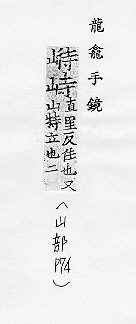 龍龕手鏡
峙直里反住也又
山特立也二
(山部P74)